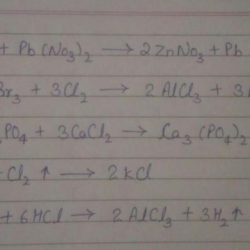 + Pb(No3)2 → 2ZnNo3 + Pb
Br3 + 3Cl2 → 2 AlCl3 + 3
PO4 + 3CaCl2 → Ca3(PO4)2
Cl2 ↑ → 2KCl
+ 6HCl → 2 AlCl3 + 3H2↑